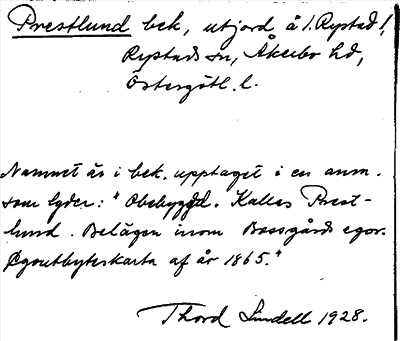 Prestlund bek, utjord å 1. Rystad!,
Rystads sn, Åkerbo hd,
Östergötl. l.
Namnet är i bek. upptaget i en anm.
som lyder: "Obebyggd. Kallas Prest-
lund. Belägen inom Bossgårds egor.
Egoutbyteskarta af år 1865."
Thord Lindell 1928.